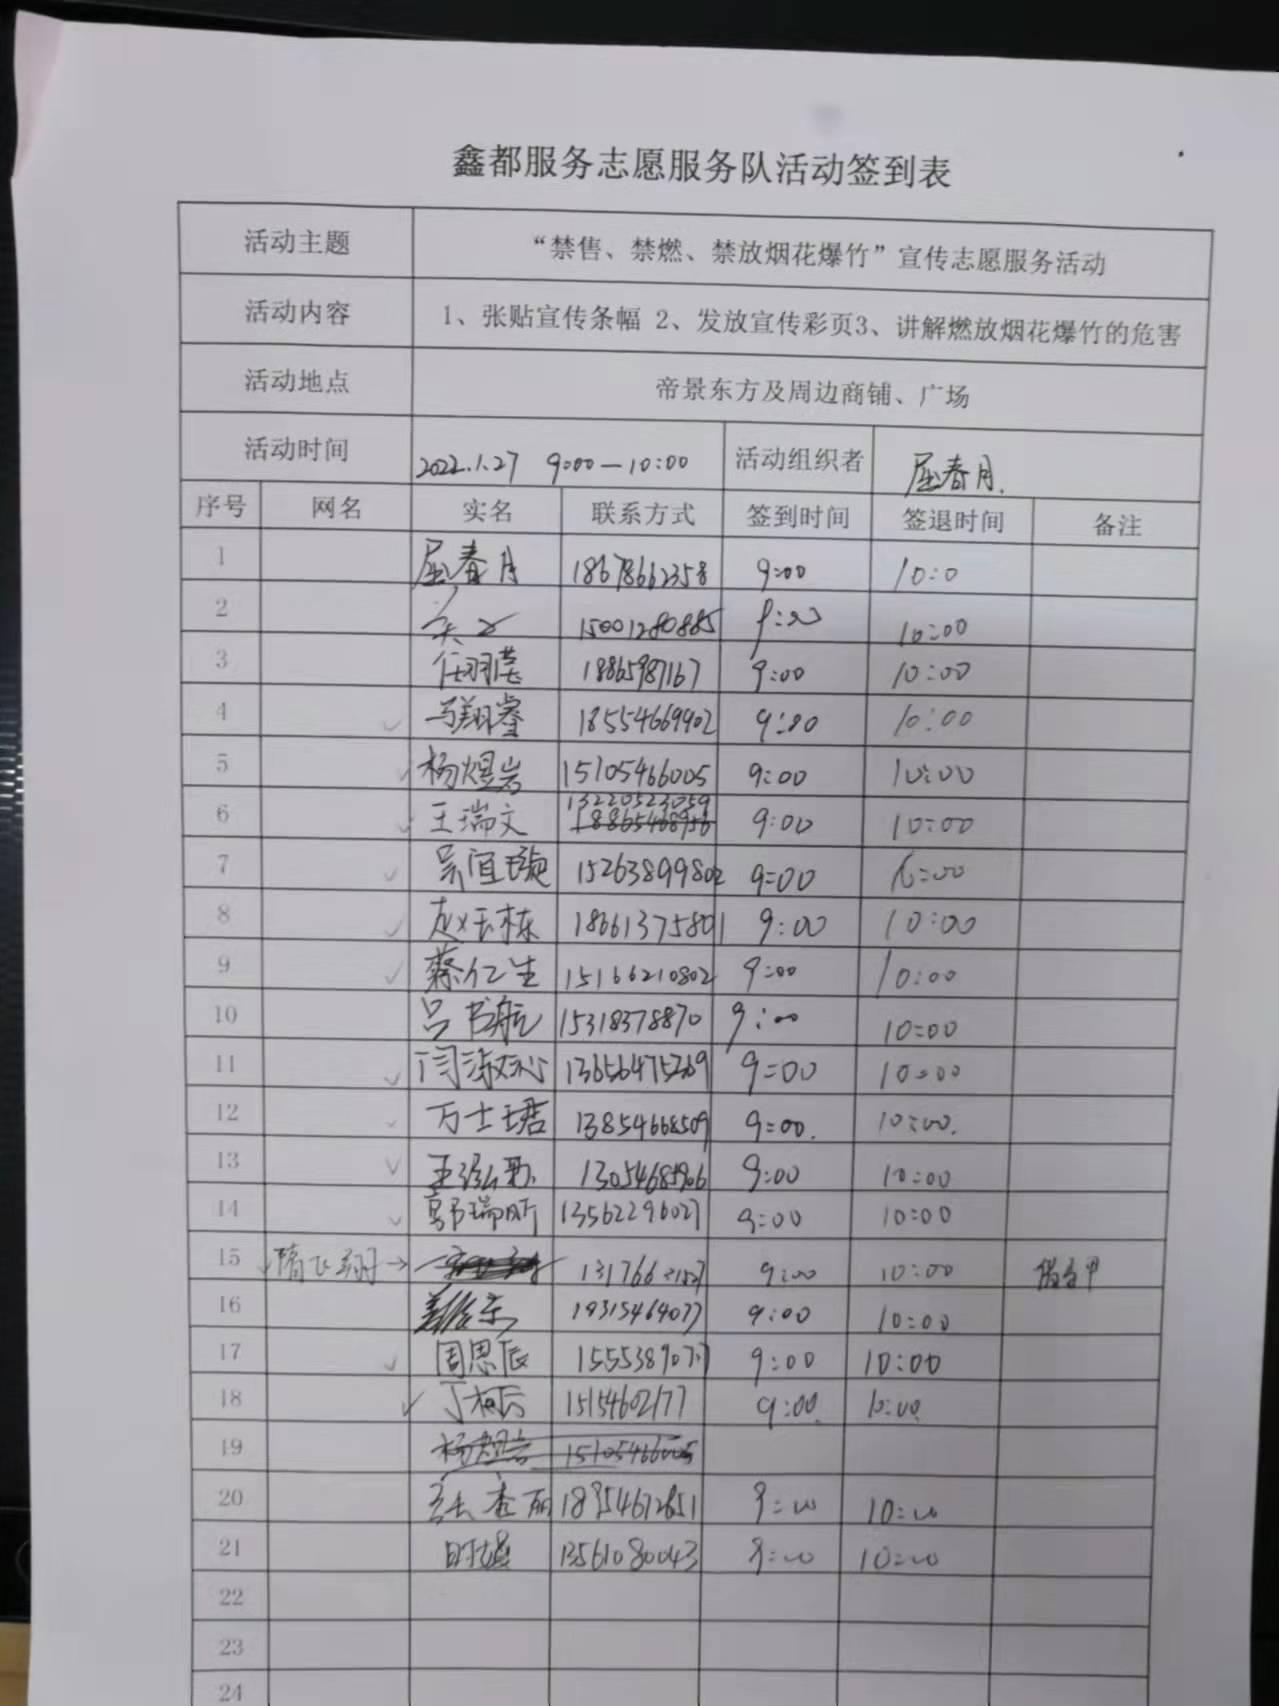 鑫都服务志愿服务队活动签到表
活动主题 “禁售、禁燃、禁放烟花爆竹”宣传志愿服务活动
活动内容 1、张贴宣传条幅 2、发放宣传彩页3、讲解燃放烟花爆竹的危害
活动地点 帝景东方及周边商铺、广场
活动时间 2022.1.27 9:00—10:00 活动组织者 屈春月.
序号 网名 实名 联系方式 签到时间 签退时间 备注
1 屈春月 18678662358 9:00 10:0
2 15001280885 9:00 10:00
3 任翔莹 18865987167 9:00 10:00
4 马翔鋆 18554669902 9:00 10:00
5 杨煜岩 15105466005 9:00 10:00
6 王瑞文 13220523059 18865468956 9:00 10:00
7 吴宜璇 15263899802 9:00 10:00
8 赵玉栋 18661375801 9:00 10:00
9 蔡仁生 15166210802 9:00 10:00
10 吕书航 15318378870 9:00 10:00
11 闫淑沁 13656475269 9:00 10:00
12 万士珺 13854668509 9:00. 10:00.
13 王 9:00 10:00
14 郭瑞昕 13562296027 9:00 10:00
15 隋飞翔→ 9:00 10:00
16 9:00 10:00
17 周思辰 9:00 10:00
18 丁 15154602177 9:00 10:00
19 杨煜岩 15105466005
20 9:00 10:00
21 时媖 13561080043 9:00 10:00
22
23
24